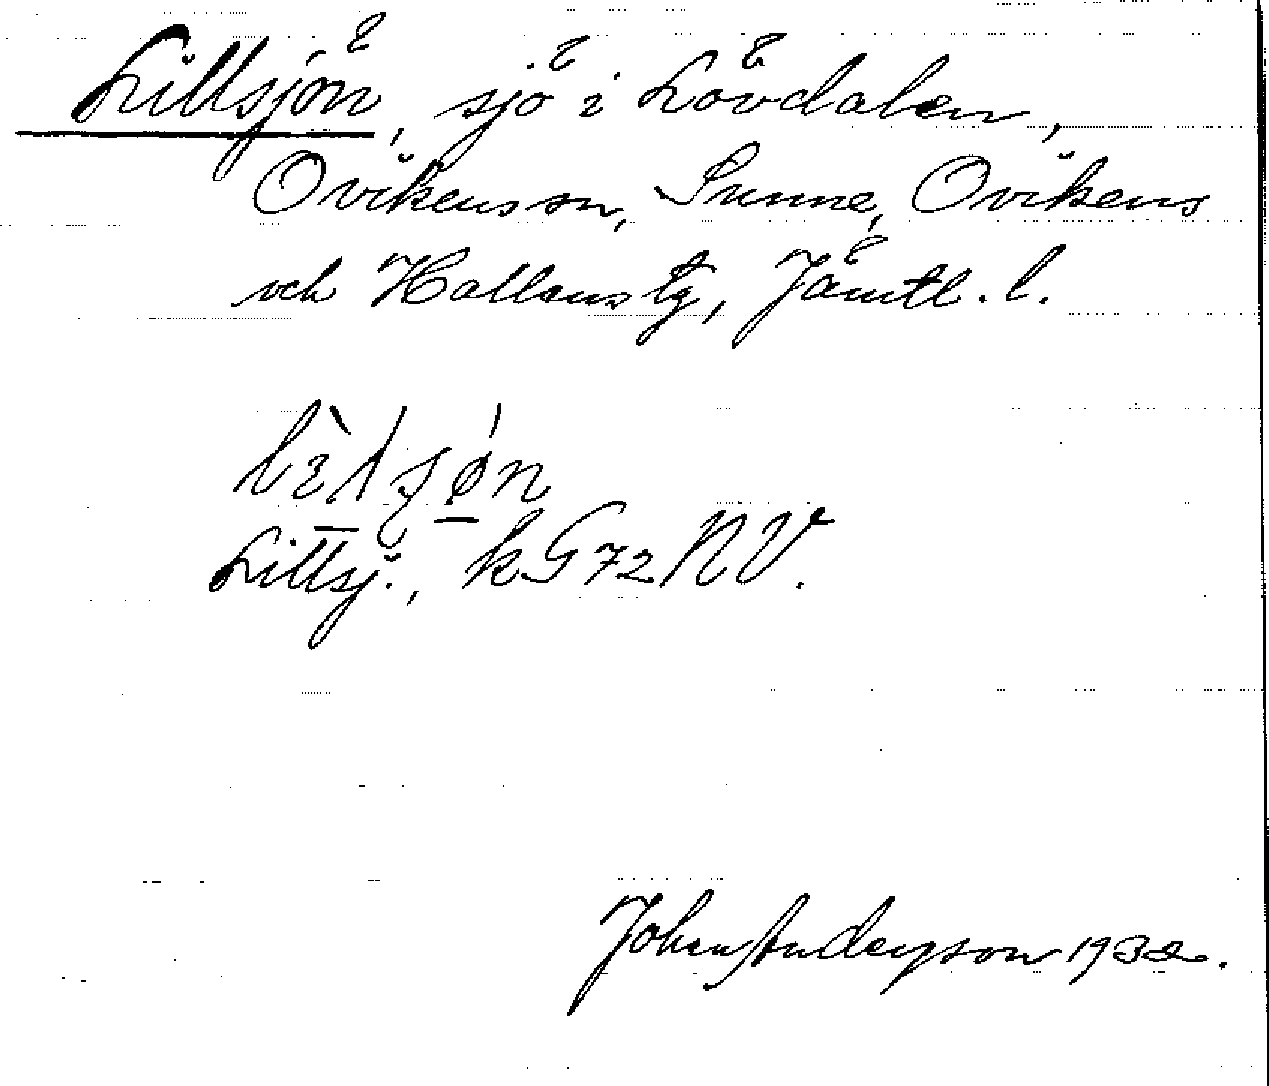 Lillsjön, sjö i Lövdalen,
Ovikens sn, Sunne, Ovikens
och Hallens tg, Jämtl. l.
Lillsj., kG72NV.
Johan Anderson 1932.